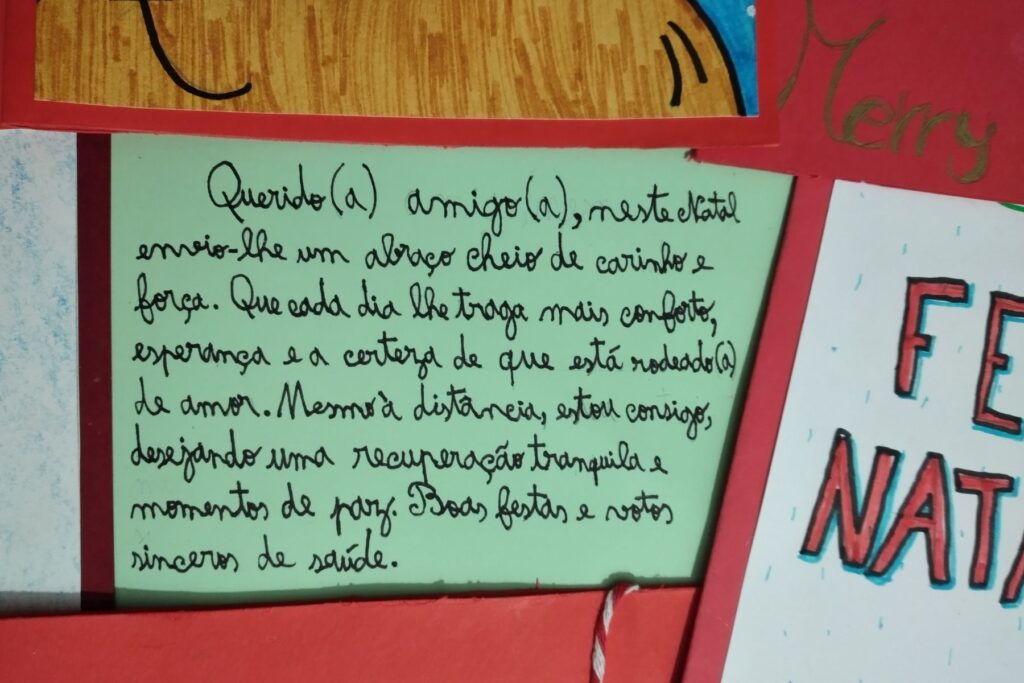 Merry
Querido(a) amigo(a), neste Natal
envio-lhe um abraço cheio de carinho e
força. Que cada dia lhe traga mais conforto,
esperança e a certeza de que está rodeado(a)
de amor. Mesmo à distância, estou consigo,
desejando uma recuperação tranquila e
momentos de paz. Boas festas e votos
sinceros de saúde.
FE
NATA